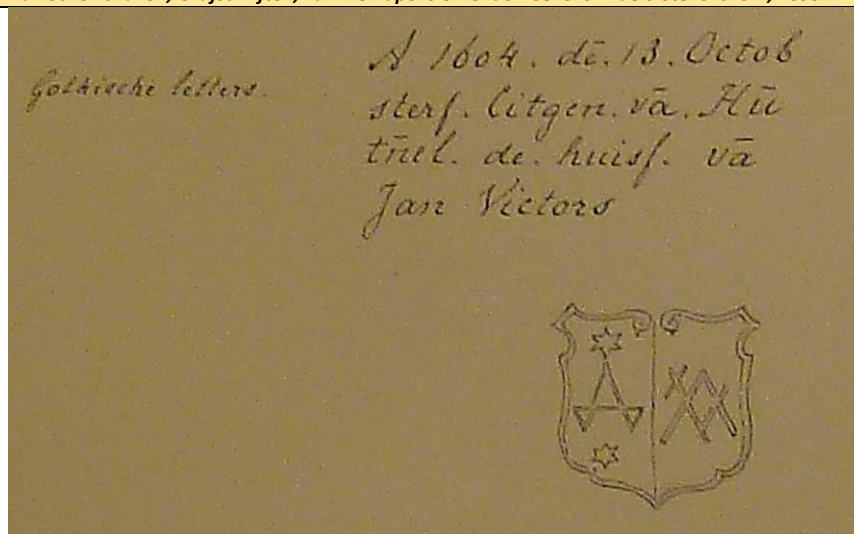 Gothische letters.
A 1604. dē. 13. Octob
sterf. Litgen. vā. Hū
tn̄el. de. huisf. vā
Jan Victors